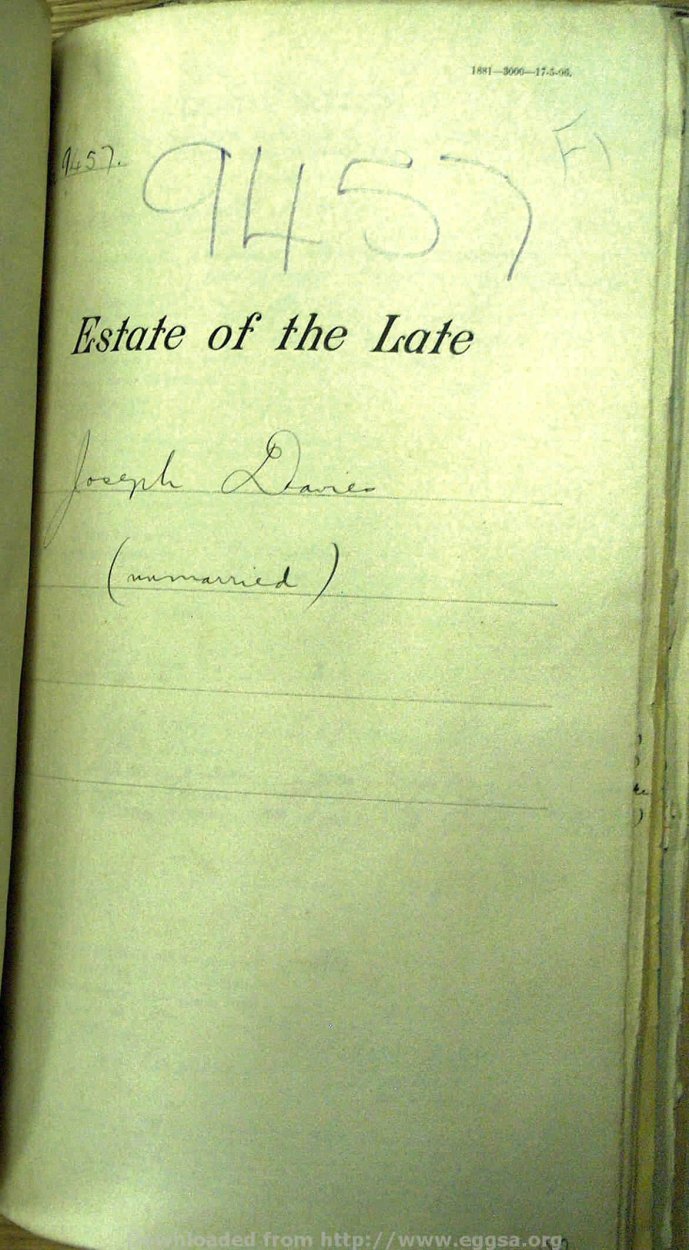 1881—3000—17-5-06.
9457.
9457
Estate of the Late
Joseph Davies
(unmarried)
Downloaded from http://www.eggsa.org